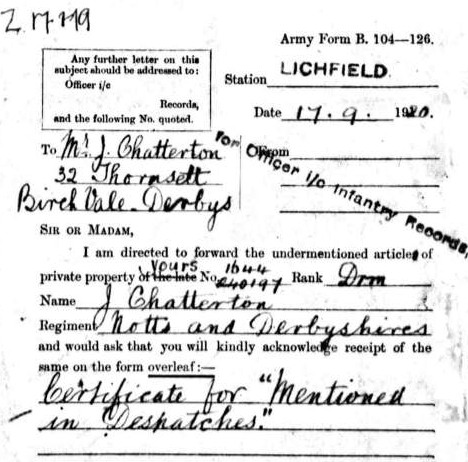 Z 17119
Army Form B. 104—126.
Any further letter on this
subject should be addressed to:
Officer i/c
Records,
and the following No. quoted.
Station LICHFIELD.
Date 17.9. 1920.
To Mr J. Chatterton
From
for Officer i/c Infantry Records,
32 Thornsett
Birch Vale. Derbys
SIR OR MADAM,
I am directed to forward the undermentioned articles of
private property of the late yours No. 240197 1644 Rank Drm
Name J Chatterton
Regiment Notts and Derbyshires
and would ask that you will kindly acknowledge receipt of the
same on the form overleaf:—
Certificate for "Mentioned
in Despatches."